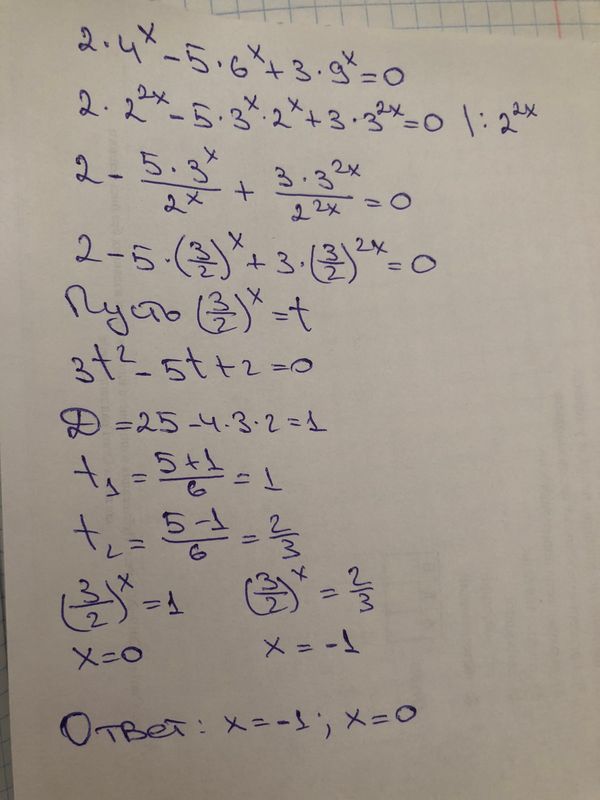 2·4^x - 5·6^x + 3·9^x = 0
2·2^{2x} - 5·3^x·2^x + 3·3^{2x} = 0 |: 2^{2x}
2 - \frac{5·3^x}{2^x} + \frac{3·3^{2x}}{2^{2x}} = 0
2 - 5·(\frac{3}{2})^x + 3·(\frac{3}{2})^{2x} = 0
Пусть (\frac{3}{2})^x = t
3t^2 - 5t + 2 = 0
D = 25 - 4·3·2 = 1
t_1 = \frac{5+1}{6} = 1
t_2 = \frac{5-1}{6} = \frac{2}{3}
(\frac{3}{2})^x = 1 (\frac{3}{2})^x = \frac{2}{3}
x = 0 x = -1
Ответ: x = -1; x = 0